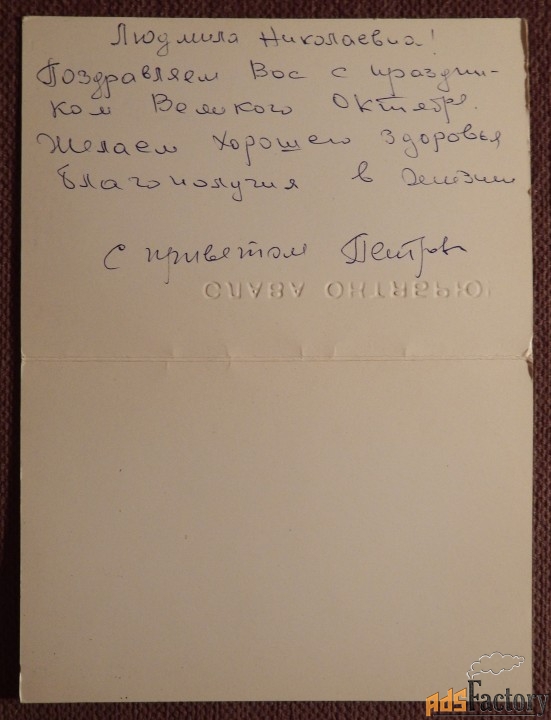 Людмила Николаевна!
Поздравляем Вас с праздни-
ком Великого Октября.
Желаем хорошего здоровья
благополучия в жизни
С приветом Петров
СЛАВА ОКТЯБРЮ!
AdsFactory